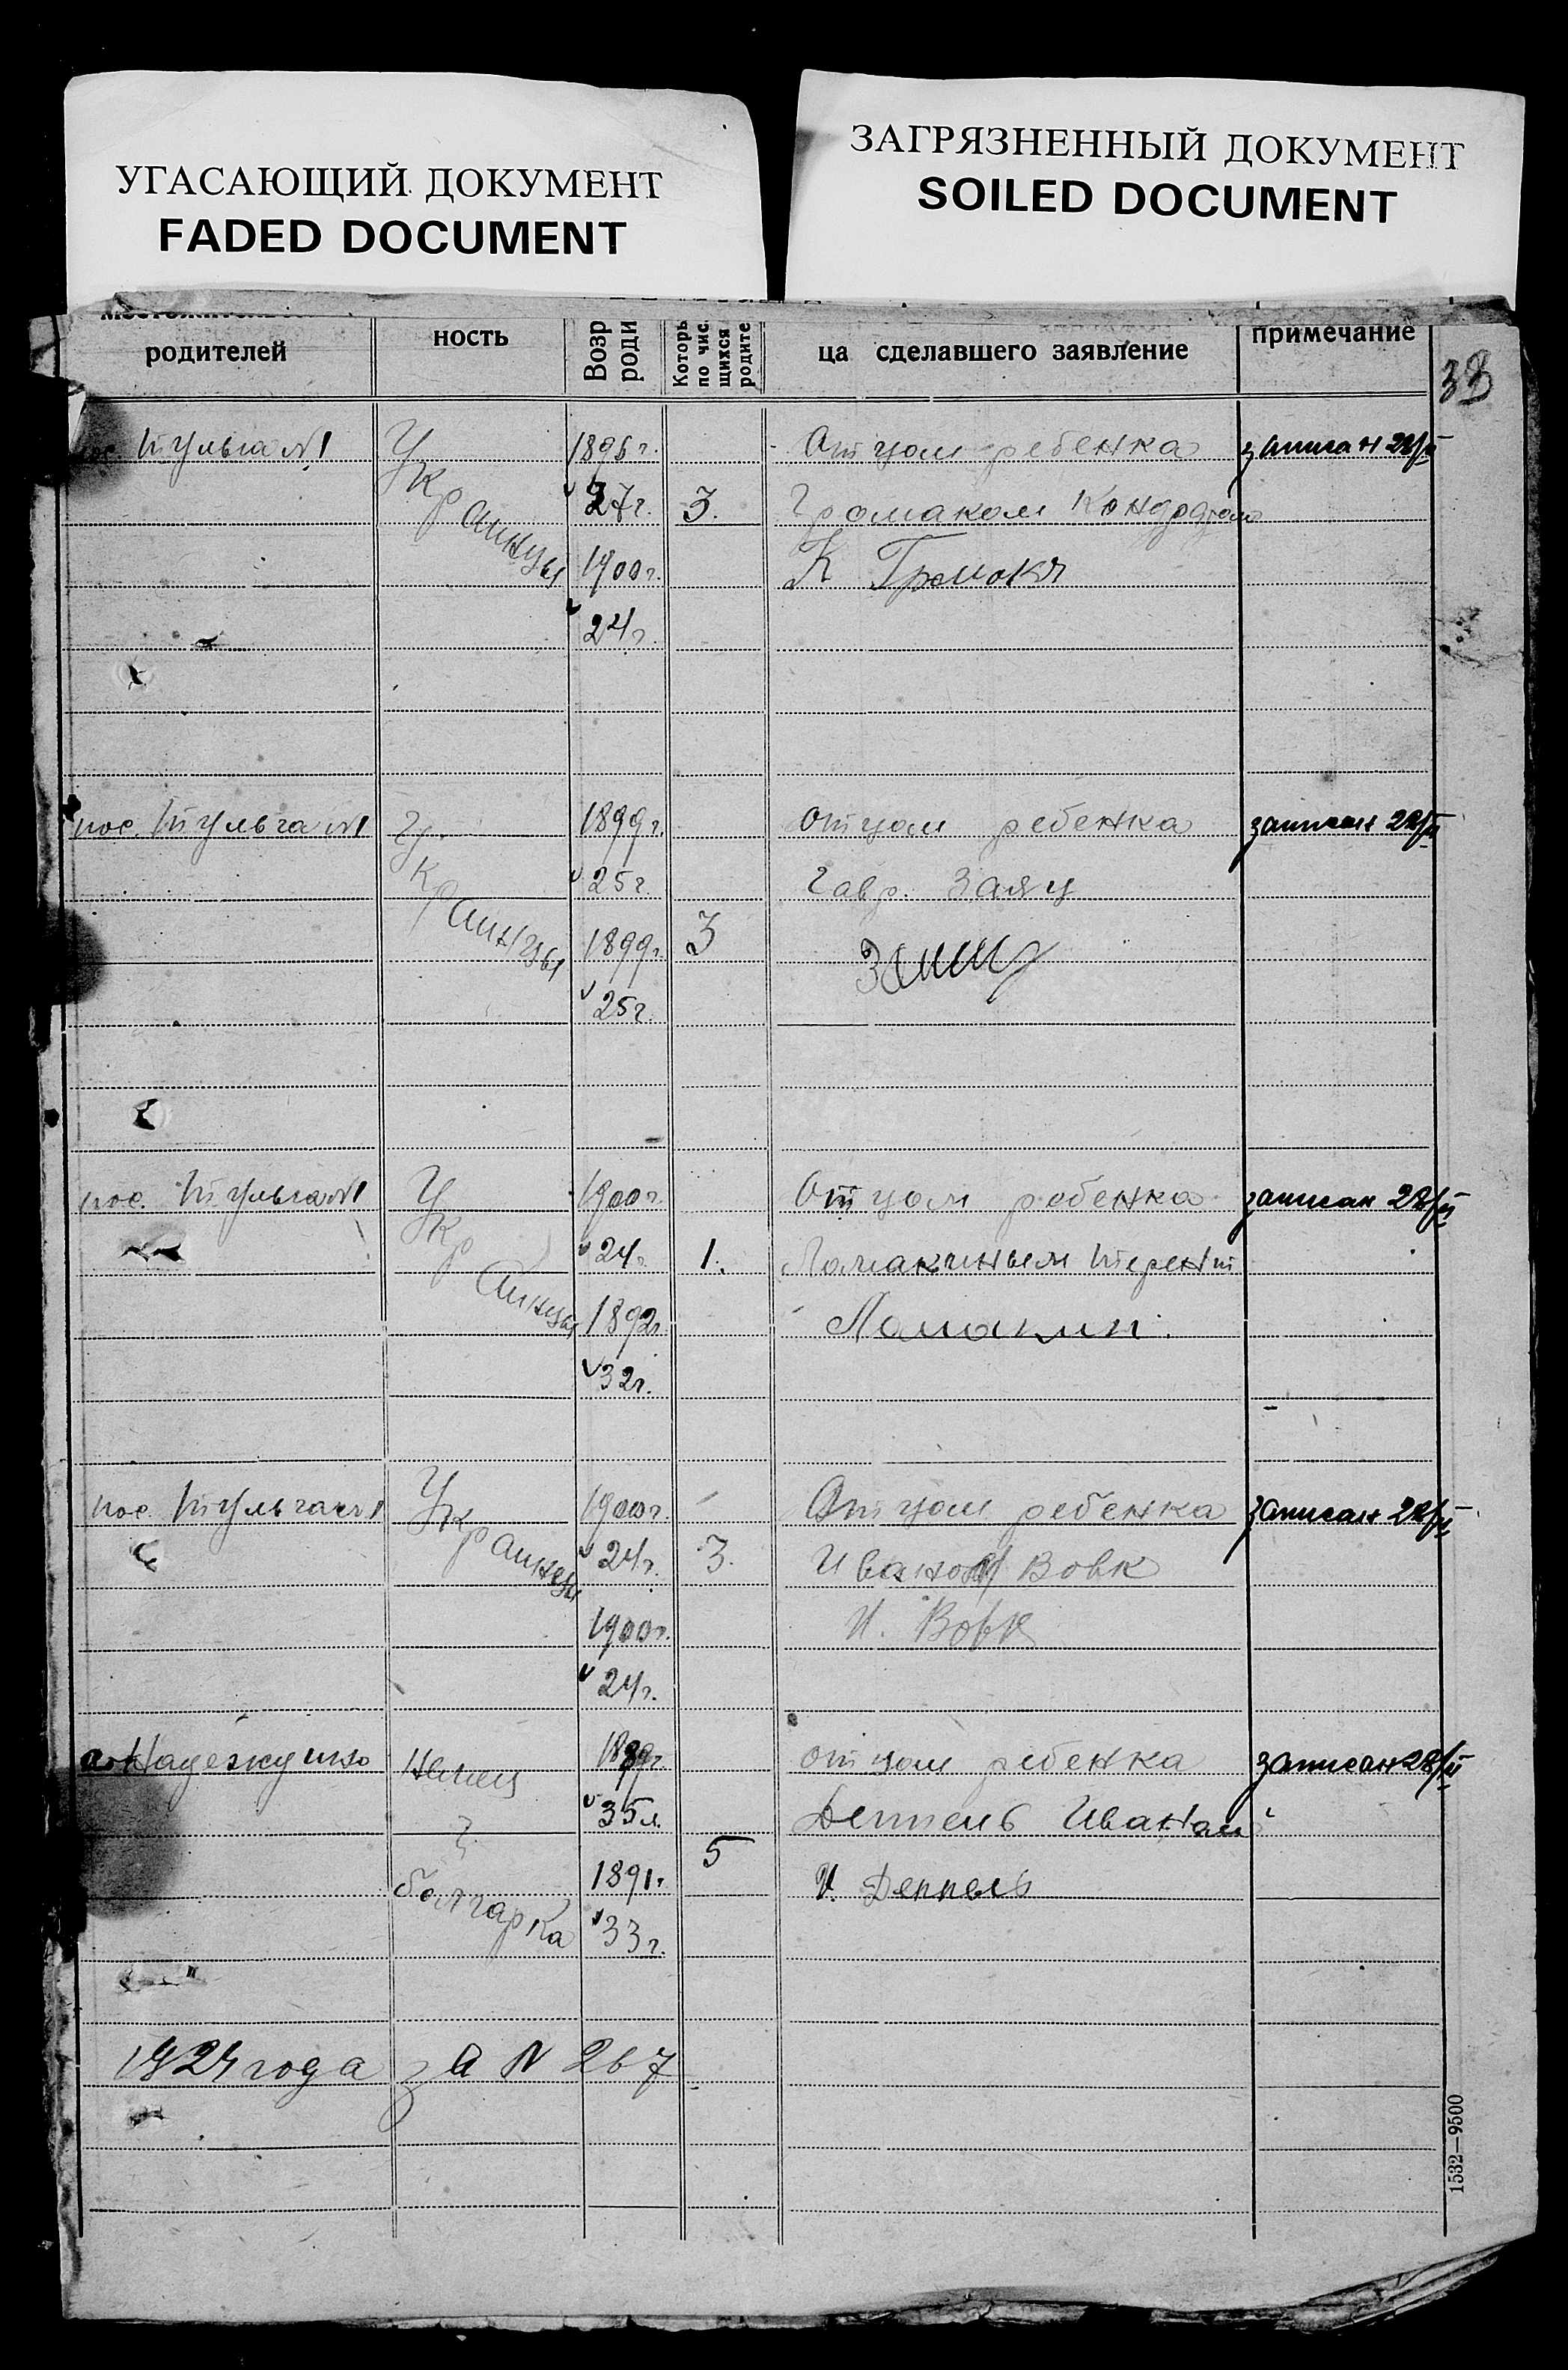 УГАСАЮЩИЙ ДОКУМЕНТ
FADED DOCUMENT
ЗАГРЯЗНЕННЫЙ ДОКУМЕНТ
SOILED DOCUMENT
родителей
ность
Возр
роди
Которы
по чис.
щихся
родите
ца сделавшего заявление
примечание
38
Тульга №1
Украинцы
1896 г.
27 г.
1900 г.
24 г.
3.
Отцом ребенка
Громаком
К Громока
записан 28/II
пос. Тульга №1
Украинцы
1899 г.
25 г.
1899 г.
25 г.
3
отцом ребенка
Гавр. Заяц
записан 28/II
пос. Тульга №1
Украинцы
1900 г.
24 г.
1892 г.
32 г.
1.
Отцом ребенка
Ломакиным Терент
Ломакин
записан 28/II
пос. Тульга №1
Украинцы
1900 г.
24 г.
1900 г.
24 г.
3.
Отцом ребенка
Иваном Вовк
И. Вовк
записан 28/II
Немец
и
болгарка
35 л.
1891 г.
33 г.
5
отцом ребенка
Деппель Иваном
И. Деппель
записан 28/II
1924 года за N 267
1532—9500